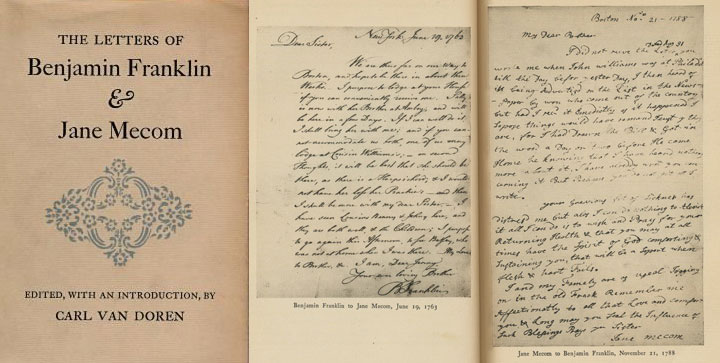 THE LETTERS OF
Benjamin Franklin
&
Jane Mecom
EDITED, WITH AN INTRODUCTION, BY
CARL VAN DOREN
New York, June 19, 1763
Dear Sister,
We are thus far on our Way to
Boston, and hope to be there in about three
Weeks. I purpose to lodge at your House
if you can conveniently receive me.
is now with her Brother at Amboy, and will
be here in a few Days. If I can well do it
I shall bring her with me; and if you can
not accommodate us both, one of us may
lodge at Cousin Williams's, on second
Thoughts, it will be best that she should be
there, as there is a Harpsichord, & I would
not have her lose her Practice and then
I shall be more with my dear Sister.
have seen Cousins Benny & Johnny here, and
they are both well, & the Children; I purpose
to go again this Afternoon, to see
was not at home when I was there. My Love
to Brother, &c. I am, Dear Jenny,
Your ever loving Brother
B Franklin
Benjamin Franklin to Jane Mecom, June 19, 1763
Boston Novr 21 - 1788
My Dear Brother
I did not receve the Leter you
wrote me when John williams was at Philadel
till the Day before yester Day, I then heard of
its being advertised in the List in the News-
Paper by won who came out of the country
but had I seen it Imediatly as it happened I
Supose things would have remaind
are, for I had Down the Best & Got in
the wood a Day or two before He came
Home he knowing that I have heard nothing
more about it. I have
coming it But
wrote.
your Grevious fit of Sickness has
distresd me but alas I can do nothing to Aleviate
it all I can do is to wish and Pray for your
Returning Health & that you may at all
times have the Spirit of God comforting &
Sustaining you, that will be a Suport when
flesh & hart Fails.
I and my Famely are as usual Joging
on in the old Track Remember me
Affectionatly to all that Love and comfort
you & long may you Feal the Influence of
Such Blessings Prays yr Sister
Jane Mecom
Jane Mecom to Benjamin Franklin, November 21, 1788